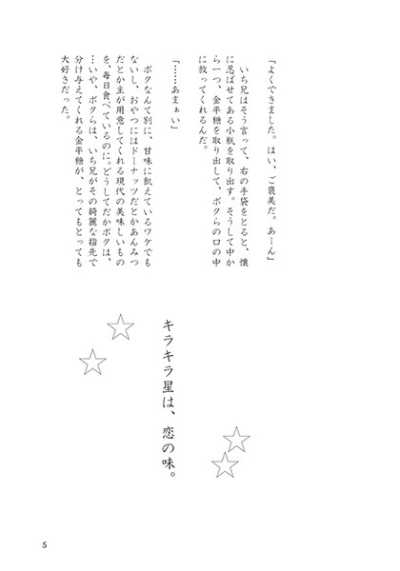 「よくできました。はい、ご褒美だ。あーん」
いち兄はそう言って、右の手袋をとると、懐
に忍ばせてある小瓶を取り出す。そうして中か
ら一つ、金平糖を取り出して、ボクらの口の中
に放ってくれるんだ。
「……あまぁい」
ボクなんて別に、甘味に飢えているワケでも
ないし、おやつにはドーナッツだとかあんみつ
だとか主が用意してくれる現代の美味しいもの
を、毎日食べているのに。どうしてだかボクは、
…いや、ボクらは、いち兄がその綺麗な指先で
分け与えてくれる金平糖が、とってもとっても
大好きだった。
キラキラ星は、恋の味。
5